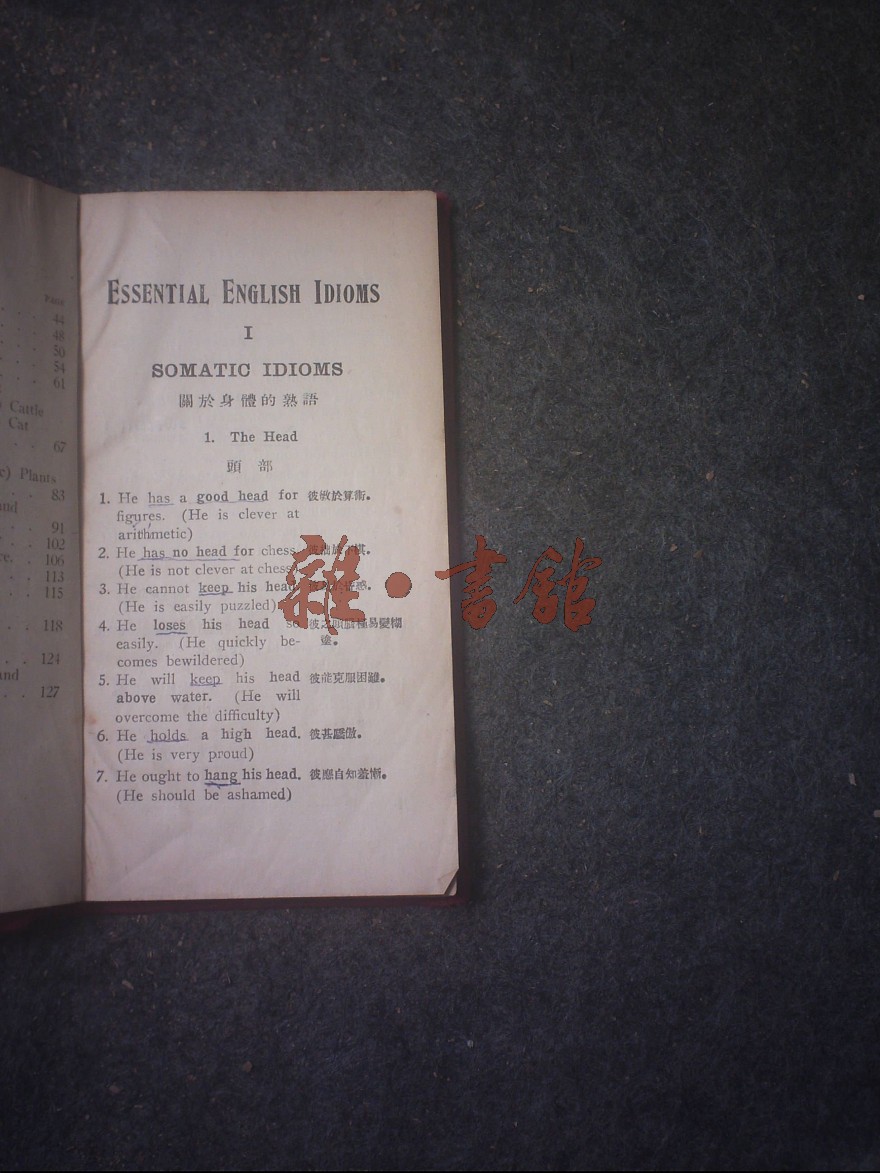 Page
44
48
50
54
61
Cattle
Cat
67
c) Plants
83
and
91
102
re. . 106
113
115
118
124
and
127
ESSENTIAL ENGLISH IDIOMS
I
SOMATIC IDIOMS
關於身體的熟語
1. The Head
頭部
1. He has a good head for 彼敏於算術。
figures. (He is clever at
arithmetic)
2. He has no head for chess.
(He is not clever at chess)
3. He cannot keep his head
(He is easily puzzled)
4. He loses his head so 彼之頭腦極易變糊
easily. (He quickly be- 塗。
comes bewildered)
5. He will keep his head 彼能克服困難。
above water. (He will
overcome the difficulty)
6. He holds a high head. 彼甚驕傲。
(He is very proud)
7. He ought to hang his head. 彼應自知羞慚。
(He should be ashamed)
雜·書館